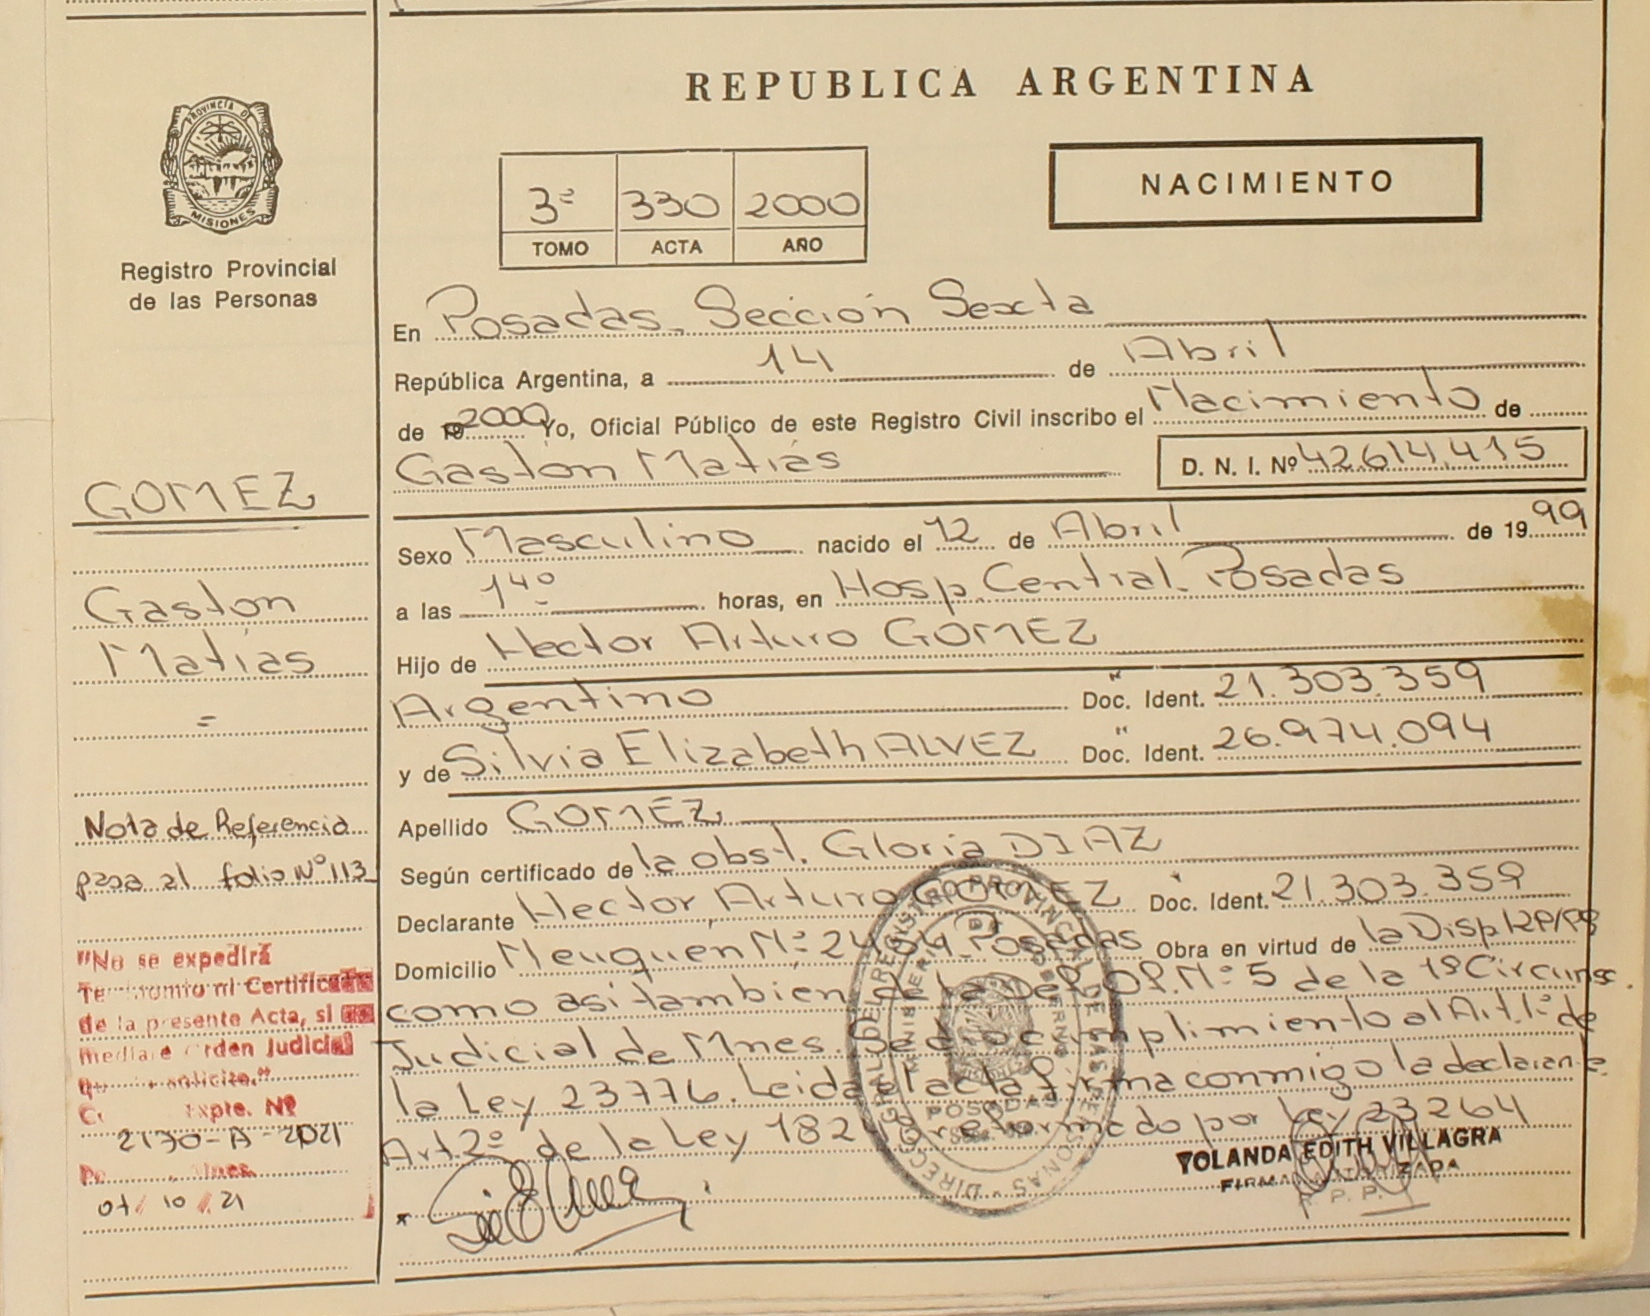 REPUBLICA ARGENTINA
PROVINCIA DE
MISIONES
Registro Provincial
de las Personas
3º 330 2000
TOMO ACTA AÑO
NACIMIENTO
En Posadas, Sección Sexta
República Argentina, a 14 de Abril
de 2000 Yo, Oficial Público de este Registro Civil inscribo el Nacimiento de
Gastón Matías D. N. I. Nº 42.614.415
Sexo Masculino nacido el 12 de Abril de 19 99
a las 14º horas, en Hosp. Central Posadas
Hijo de Hector Arturo GOMEZ
Argentino Doc. Ident. 21.303.359
y de Silvia Elizabeth ALVEZ Doc. Ident. 26.974.094
Apellido GOMEZ
Según certificado de la obst. Gloria DIAZ
Declarante Hector Arturo GOMEZ Doc. Ident. 21.303.359
Domicilio Neuquen Nº 2464 Posadas Obra en virtud de la Disp
como asi tambien de la Def. Of. Nº 5 de la 1º Circunsc.
Judicial de Mnes. Se dio cumplimiento al Art. 1º de
la Ley 23776. Leida el acta firma conmigo la declarante
Art 2º de la Ley 182 reformado por Ley 23264
YOLANDA EDITH VILLAGRA
R. P. P.
GOMEZ
Gastón
Matías
=
Nota de Referencia
pasa al folio Nº 113
"No se expedirá
Testimonio ni Certificado
de la presente Acta, si no
mediare Orden Judicial
que lo solicite."
Expte. Nº
2130-A-2021
Mnes.
01/10/21
DIRECCION GRAL DEL REGISTRO PROVINCIAL DE LAS PERSONAS
MINISTERIO DE GOBIERNO
POSADAS